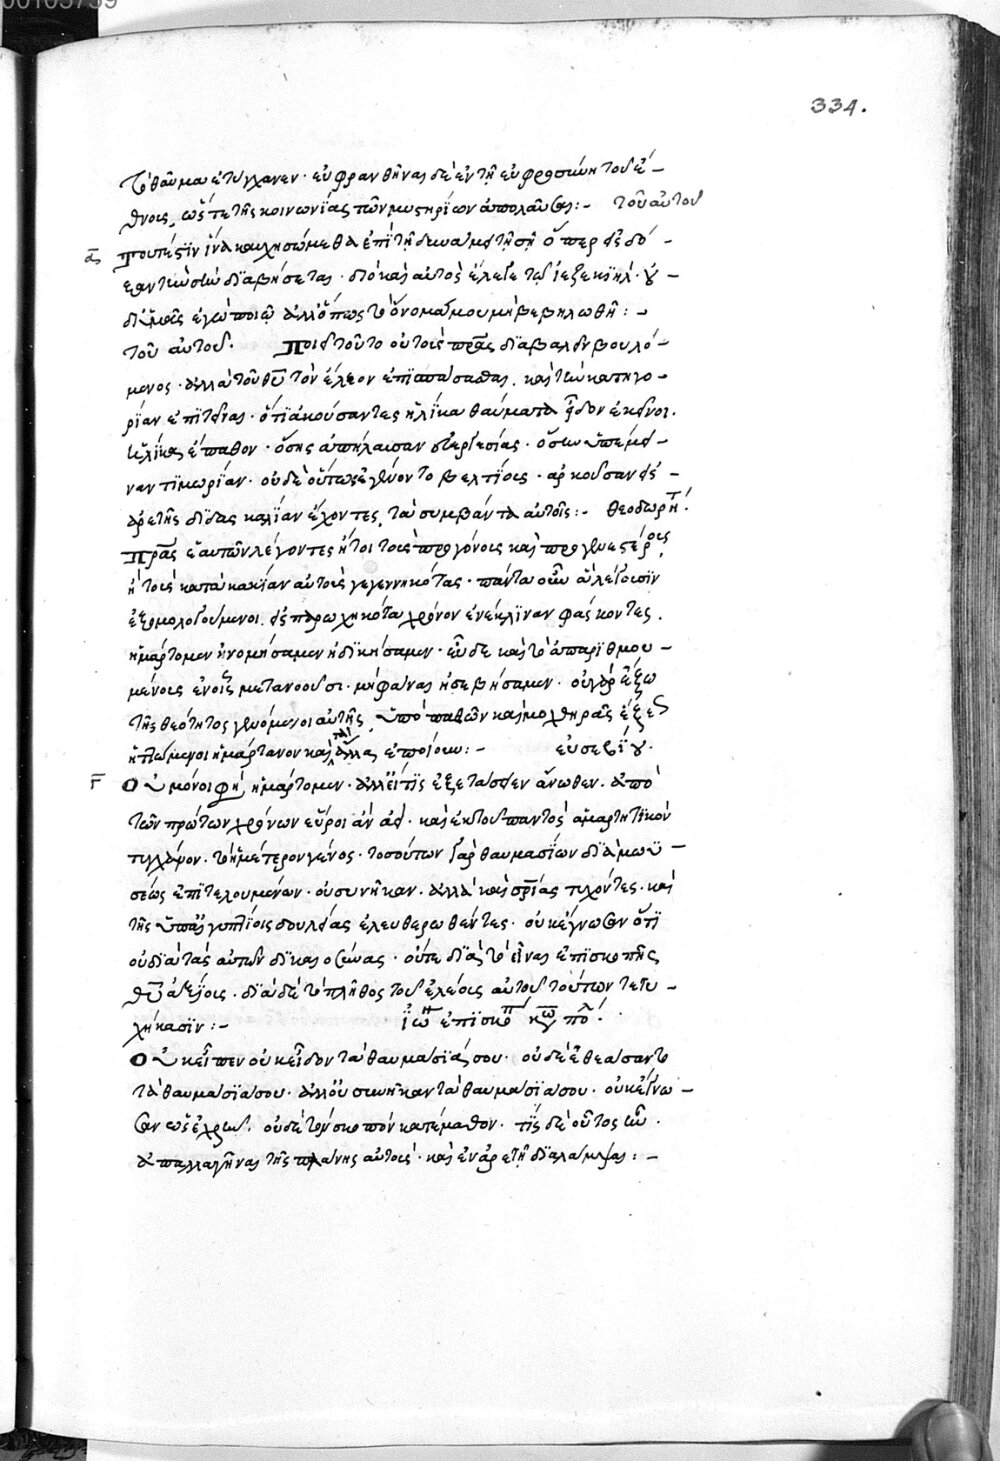 334.
τὸ θαῦμα ἐτύγχανεν· εὐφρανθῆναι δὲ ἐν τῇ εὐφροσύνῃ τοῦ ἔ-
θνους, ὥστε τῆς κοινωνίας τῶν μυστηρίων ἀπολαῦσαι:- τοῦ αὐτοῦ
τουτέστιν ἵνα καυχησώμεθα ἐπὶ τῇ δυνάμει τῇ σῇ ὅπερ εἰς δό-
διὸ καὶ αὐτὸς ἔλεγε τῷ ἰεζεκιήλ· οὐ
δι' ὑμᾶς ἐγὼ ποιῶ ἀλλ' ὅπως τὸ ὄνομά μου μὴ βεβηλωθῇ:-
τοῦ αὐτοῦ. Ποιεῖ τοῦτο οὐ τοὺς πρας διαβαλεῖν βουλό-
μενος· ἀλλὰ τοῦ θυ τὸν ἔλεον ἐπισπάσασθαι. καὶ τὴν κατηγο-
ρίαν ἐπιτεῖναι· ὅτι ἀκούσαντες ἡλίκα θαύματα εἶδον ἐκεῖνοι.
ἡλίκα ἔπαθον· ὅσης ἀπήλαυσαν εὐεργεσίας· ὅσην ὑπέμει-
ναν τιμωρίαν· οὐδὲ οὕτως ἐγένοντο βελτίους· ἀρκοῦσαν εἰς
ἀρετῆς διδασκαλίαν ἔχοντες τὰ συμβάντα αὐτοῖς:- θεοδωρήτ.
Πρας ἑαυτῶν λέγοντες ἤτοι τοὺς προγόνους καὶ προγενεστέρους,
ἢ τοὺς κατὰ κακίαν αὐτοὺς γεγεννηκότας· πάντα οὖν ἃ λέγουσιν
ἐξομολογούμενοι. εἰς παρωχηκότα χρόνον ἐνέκλιναν φάσκοντες.
ἡμάρτομεν ἠνομήσαμεν ἠδικήσαμεν· εὖ δὲ καὶ τὸ ἀπαριθμου-
μένους ἐν οἷς μετανοοῦσι· μὴ φάναι ἠσεβήσαμεν· οὐ γὰρ ἔξω
τῆς θεότητος γενόμενοι αὐτῆς, ὑπὸ παθῶν καὶ μοχθηρᾶς ἕξεως
ἡττώμενοι ἡμάρτανον καὶ τἆλλα ἐποίουν:- εὐσεβίου.
Οὐ μόνοι φησὶ ἡμάρτομεν· ἀλλ' εἴ τις ἐξετάσειεν ἄνωθεν· ἀπὸ
τῶν πρώτων χρόνων εὕροι ἂν ἀεὶ· καὶ ἐκ τοῦ παντὸς ἁμαρτητικὸν
τυγχάνον· τὸ ἡμέτερον γένος· τοσούτων γὰρ θαυμασίων διὰ μωϋ-
σέως ἐπιτελουμένων· οὐ συνῆκαν· ἀλλὰ καὶ σριας τυχόντες· καὶ
τῆς ὑπ' αἰγυπτίοις δουλείας ἐλευθερωθέντες· οὐκ ἔγνωσαν ὅτι
οὐ διὰ τὰς αὐτῶν δικαιοσύνας· οὔτε διὰ τὸ εἶναι ἐπισκοπῆς
θυ ἀξίους· διὰ δὲ τὸ πλῆθος τοῦ ἐλέους αὐτοῦ τούτων τετυ-
χήκασιν:-
Οὐκ εἶπεν οὐκ εἶδον τὰ θαυμάσιά σου· οὐδὲ ἐθεάσαντο
τὰ θαυμάσιά σου· ἀλλ' οὐ συνῆκαν τὰ θαυμάσιά σου· οὐκ ἔγνω-
σαν ὡς ἐχρῆν· οὐδὲ τὸν σκοπὸν κατέμαθον· τίς δὲ οὗτος ἦν·
ἀπαλλαγῆναι τῆς πλάνης αὐτοὺς· καὶ ἐν ἀρετῇ διαλάμψαι:-